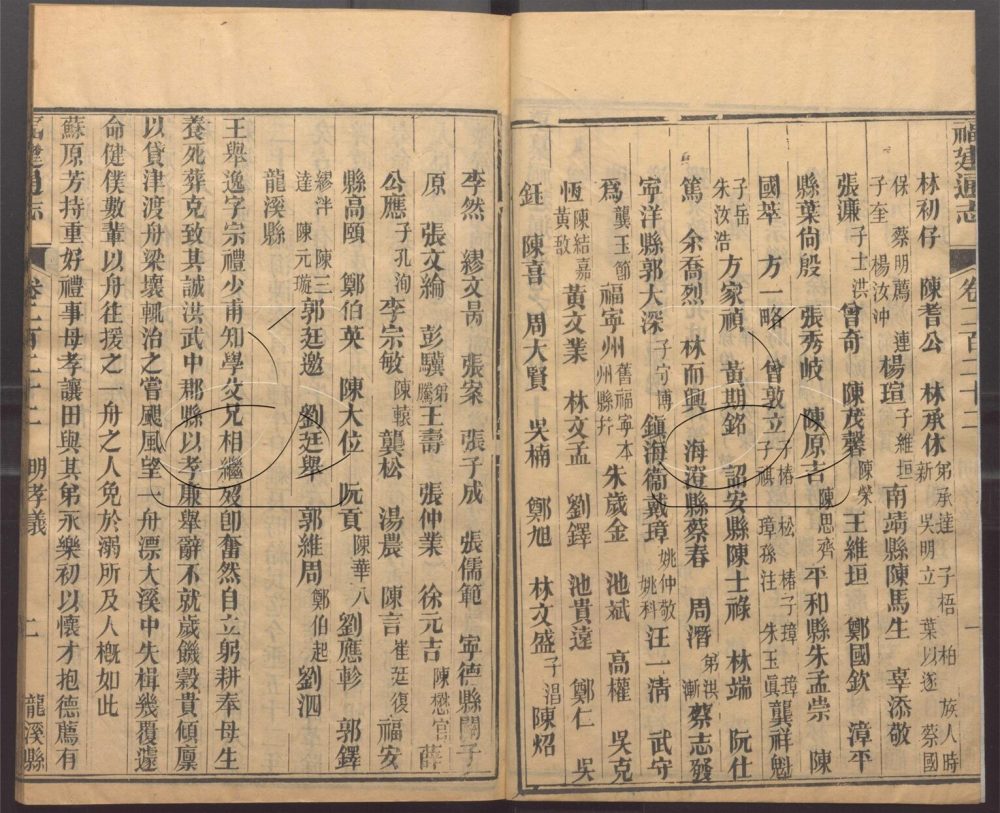 福建通志 卷二百二十二 一
林初仔 陳耆公 林承休 弟承達 子梧 柏 族人時新 吳明立 葉以遂 蔡國
保 蔡明薦 連子奎 楊汝沖 楊瑄 子維垣 南靖縣陳馬生 辜添敬
張濂 子士洪 曾奇 陳茂馨 陳榮 王維垣 鄭國欽 漳平
縣葉尙殷 張秀岐 陳原吉 陳思齊 平和縣朱孟崇 陳
國萃 方一略 曾敦立 子椿 松 椿子璋 璋子祺 璋孫注 朱玉眞 龔祥魁
子岳 朱汝浩 方家禎 黃期銘 詔安縣陳士祿 林端 阮仕
篤 余喬烈 林而興 海澄縣蔡春 周潛 弟洪 漸 蔡志發
寧洋縣郭大深 子守博 鎭海衞戴璋 姚仲敬 姚科 汪一淸 武守
爲 龔玉節 福寧州 舊福寧本州縣幷 朱歲金 池斌 高權 吳克
恆 陳結嘉 黃敔 黃文業 林文孟 劉鐸 池貴達 鄭仁 吳
鈺 陳喜 周大賢 吳楠 鄭旭 林文盛 子淐 陳炤
李然 繆文昺 張案 張子成 張儒範 寧德縣閒子
原 張文綸 彭驥 弟騰 王壽 張仲業 徐元吉 陳懋官 薛
公應 子孔洵 李宗敏 陳轅 龔松 湯農 陳言 崔莛復 福安
縣高頤 鄭伯英 陳大位 阮貢 陳華八 劉應軫 郭鐸
繆泮 陳三達 陳元璇 郭廷邀 劉廷舉 郭維周 鄭伯起 劉泗
龍溪縣
王舉逸字宗禮少甫知學父兄相繼歿卽奮然自立躬耕奉母生
養死葬克致其誠洪武中郡縣以孝廉舉辭不就歲饑穀貴傾廩
以貸津渡舟梁壞輒治之嘗颶風望一舟漂大溪中失楫幾覆遽
命健僕數輩以舟往援之一舟之人免於溺所及人槪如此
蘇原芳持重好禮事母孝讓田與其弟永樂初以懷才抱德薦有
福建通志 卷二百二十二 明孝義 二 龍溪縣